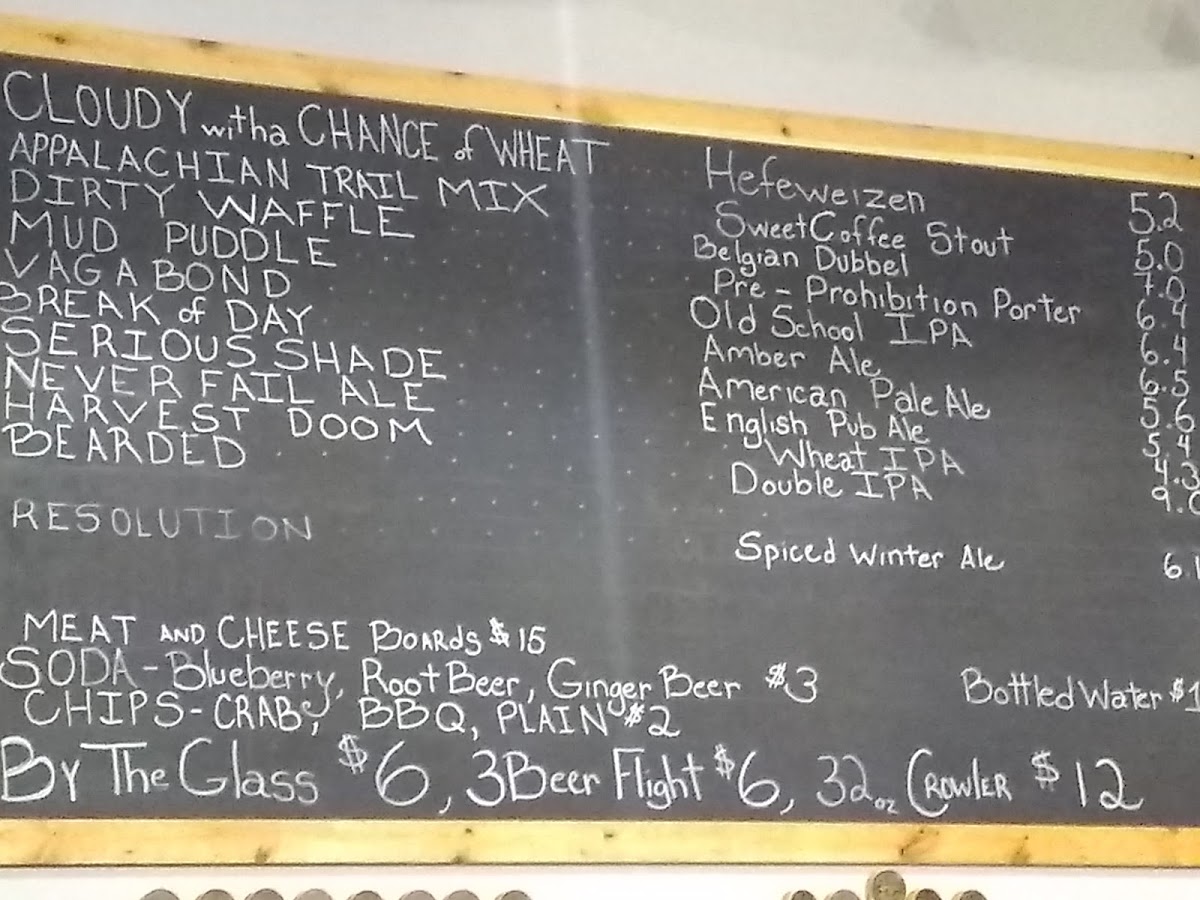 CLOUDY with a CHANCE of WHEAT Hefeweizen 5.2
APPALACHIAN TRAIL MIX Sweet Coffee Stout 5.0
DIRTY WAFFLE Belgian Dubbel 7.0
MUD PUDDLE Pre-Prohibition Porter 6.4
VAGABOND Old School IPA 6.4
BREAK of DAY Amber Ale 6.5
SERIOUS SHADE American Pale Ale 5.6
NEVER FAIL ALE English Pub Ale 5.4
HARVEST DOOM Wheat IPA 4.3
BEARDED Double IPA 9.0
RESOLUTION Spiced Winter Ale 6.1
MEAT AND CHEESE BOARDS $15
SODA - Blueberry, Root Beer, Ginger Beer $3 Bottled Water $1
CHIPS - CRAB, BBQ, PLAIN $2
By The Glass $6, 3 Beer Flight $6, 32oz CROWLER $12